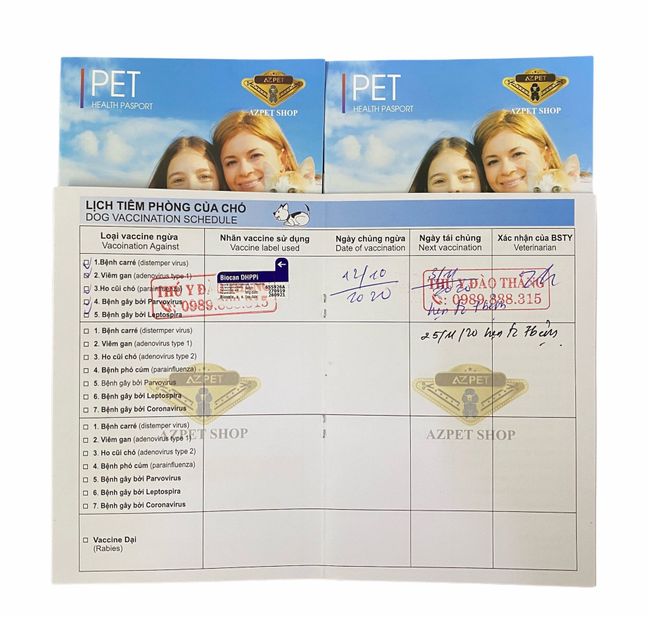 PET
HEALTH PASPORT
AZPET
AZPET SHOP
PET
HEALTH PASPORT
AZPET
AZPET SHOP
LỊCH TIÊM PHÒNG CỦA CHÓ
DOG VACCINATION SCHEDULE
Loại vaccine ngừa
Vaccination Against
Nhãn vaccine sử dụng
Vaccine label used
Ngày chủng ngừa
Date of vaccination
Ngày tái chủng
Next vaccination
Xác nhận của BSTY
Veterinarian
1.Bệnh carré (distemper virus)
2. Viêm gan (adenovirus type 1)
3.Ho cũi chó
4. Bệnh gây bởi Parvovirus
5. Bệnh gây bởi Leptospira
Biocan DHPPi
12/10
2020
THÚ Y ĐÀO THẮNG
0989.888.315
THÚ Y
0989.888.315
25/11/20 hẹn
1. Bệnh carré (distemper virus)
2. Viêm gan (adenovirus type 1)
3. Ho cũi chó (adenovirus type 2)
4. Bệnh phó cúm (parainfluenza)
5. Bệnh gây bởi Parvovirus
6. Bệnh gây bởi Leptospira
7. Bệnh gây bởi Coronavirus
AZPET
AZPET SHOP
AZPET
AZPET SHOP
1. Bệnh carré (distemper virus)
2. Viêm gan (adenovirus type 1)
3. Ho cũi chó (adenovirus type 2)
4. Bệnh phó cúm (parainfluenza)
5. Bệnh gây bởi Parvovirus
6. Bệnh gây bởi Leptospira
7. Bệnh gây bởi Coronavirus
Vaccine Dại
(Rabies)